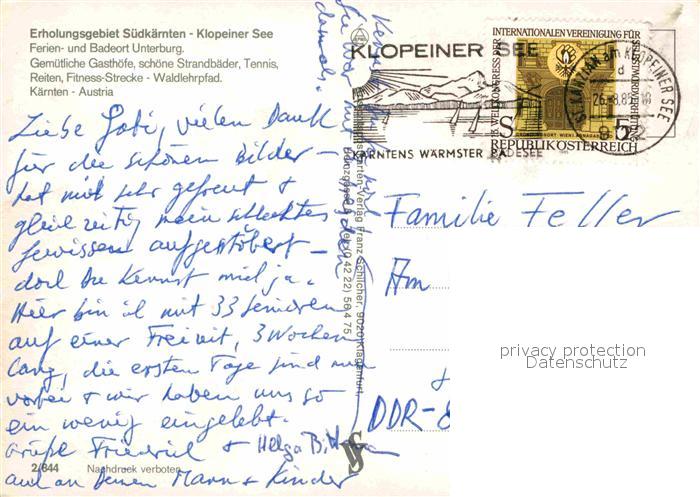 Erholungsgebiet Südkärnten - Klopeiner See
Ferien- und Badeort Unterburg.
Gemütliche Gasthöfe, schöne Strandbäder, Tennis,
Reiten, Fitness-Strecke - Waldlehrpfad.
Kärnten - Austria
Liebe Gabi, vielen Dank
für die schönen Bilder –
hat mich sehr gefreut +
gleichzeitig mein schlechtes
Gewissen aufgestöbert –
doch Du kennst mich ja.
Hier bin ich mit 33 Senioren
auf einer Freizeit, 3 Wochen
lang, die ersten Tage sind nun
vorbei + wir haben uns so
ein wenig eingelebt.
Grüße Friedrich + Helga
auch an Deinen Mann + Kinder
2/844 Nachdruck verboten
damals.
Franz Schilcher, 9020 Klagenfurt,
(0 42 22) 56 4 75
KLOPEINER SEE
KÄRNTENS WÄRMSTER BADESEE
INTERNATIONALEN VEREINIGUNG FÜR
S 5
REPUBLIK ÖSTERREICH
ST. KANZIAN am KLOPEINER SEE
d
Familie Feller
Am
DDR-
privacy protection
Datenschutz